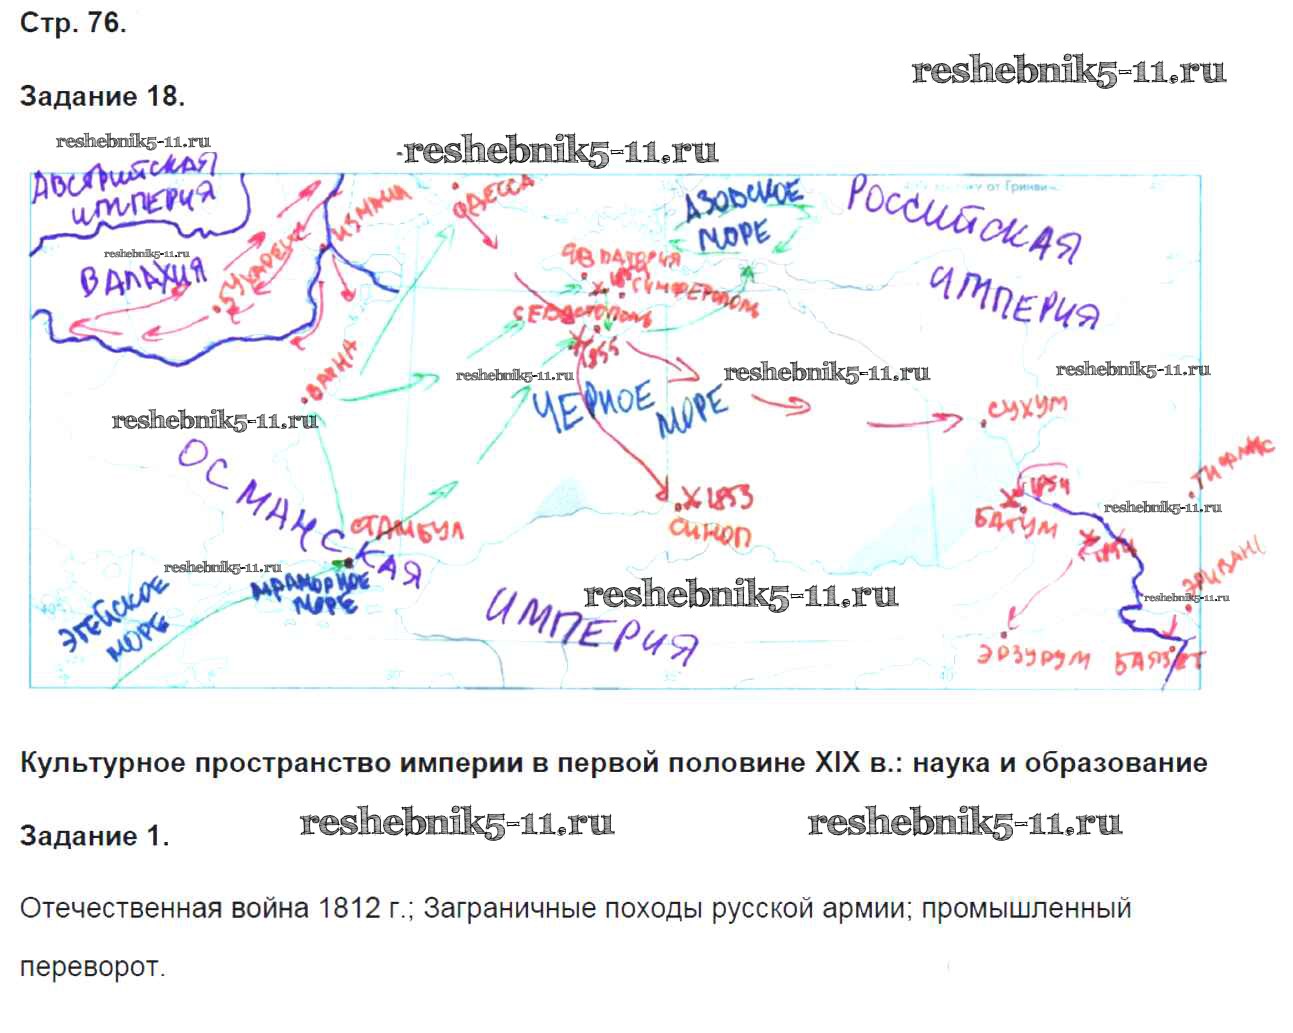 Стр. 76.
reshebnik5-11.ru
Задание 18.
reshebnik5-11.ru
reshebnik5-11.ru
АВСТРИЙСКАЯ
ИМПЕРИЯ
ИЗМАИЛ
ОДЕССА
АЗОВСКОЕ
МОРЕ
от Гринвич
РОССИЙСКАЯ
ИМПЕРИЯ
reshebnik5-11.ru
ВАЛАХИЯ
БУХАРЕСТ
ЕВПАТОРИЯ
СИМФЕРОПОЛЬ
СЕВАСТОПОЛЬ
1855
ВАРНА
reshebnik5-11.ru
reshebnik5-11.ru
reshebnik5-11.ru
ЧЕРНОЕ
МОРЕ
СУХУМ
reshebnik5-11.ru
ОСМАНСКАЯ
ИМПЕРИЯ
1853
СИНОП
1854
БАТУМ
ТИФЛИС
reshebnik5-11.ru
СТАМБУЛ
1854
reshebnik5-11.ru
ЭГЕЙСКОЕ
МОРЕ
МРАМОРНОЕ
МОРЕ
reshebnik5-11.ru
ЭРИВАНЬ
reshebnik5-11.ru
ЭРЗУРУМ
БАЯЗЕТ
30°
35°
40°
Культурное пространство империи в первой половине XIX в.: наука и образование
Задание 1.
reshebnik5-11.ru
reshebnik5-11.ru
Отечественная война 1812 г.; Заграничные походы русской армии; промышленный
переворот.